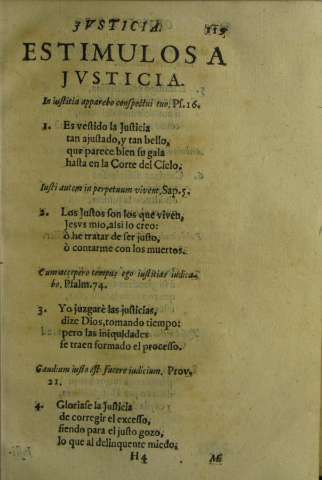 JVSTICIA. 119
ESTIMULOS A
JVSTICIA.
In iustitia apparebo conspectui tuo, Ps. 16.
1. Es vestido la Iusticia
tan ajustado, y tan bello,
que parece bien su gala
hasta en la Corte del Cielo.
Iusti autem in perpetuum vivent, Sap. 5.
2. Los Iustos son los que viven,
Jesvs mio, assi lo creo:
ò he tratar de ser justo,
ò contarme con los muertos.
Cum accepero tempus, ego iustitias iudica-
bo, Psalm. 74.
3. Yo juzgarè las justicias,
dize Dios, tomando tiempo:
pero las iniquidades
se traen formado el processo.
Gaudium iusto est facere iudicium. Prov.
21.
4. Gloriase la Iusticia
de corregir el excesso,
siendo para el justo gozo,
lo que al delinquente miedo.
H4 Mi